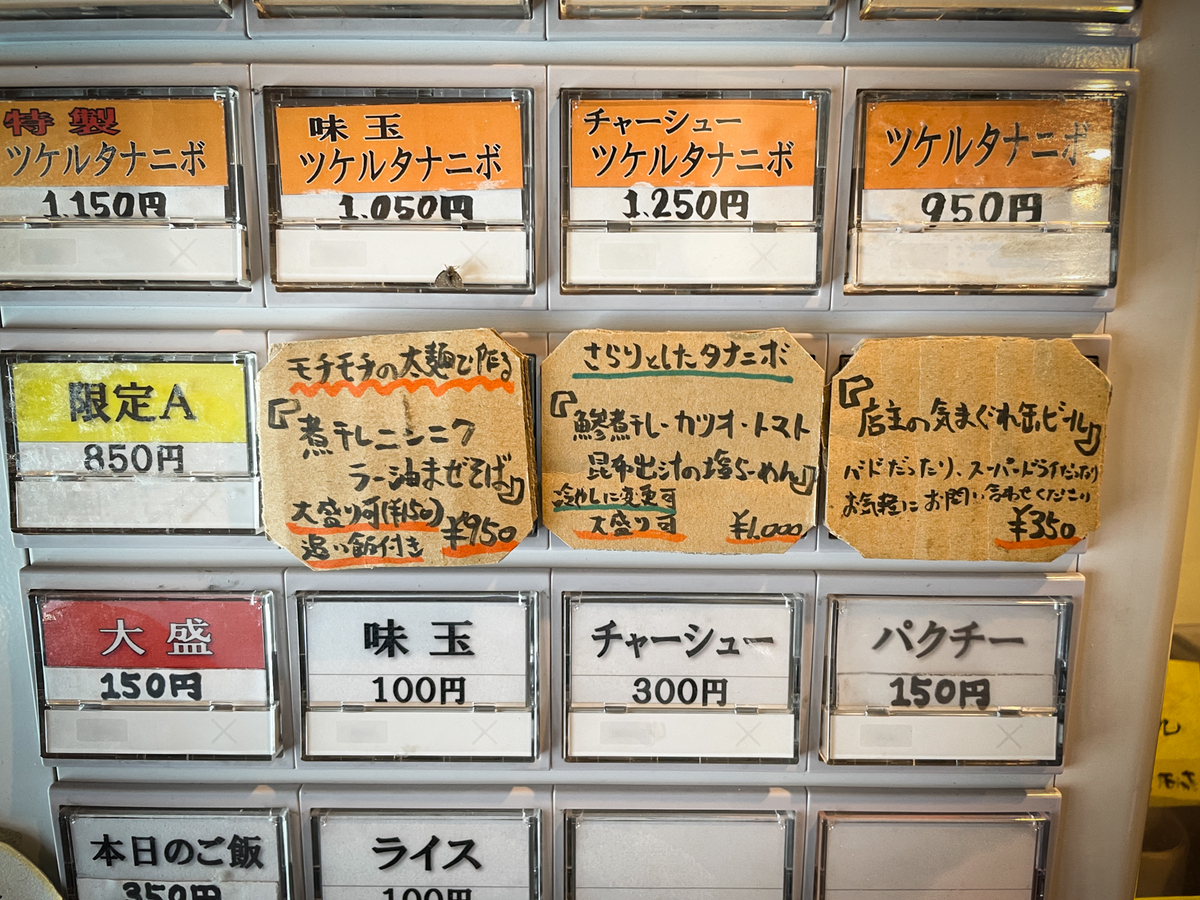 特製
ツケルタナニボ
1.150円
味玉
ツケルタナニボ
1.050円
チャーシュー
ツケルタナニボ
1.250円
ツケルタナニボ
950円
限定A
850円
モチモチの太麺で作る
『煮干しニンニク
ラー油まぜそば』
大盛り可(¥150)
追い飯付き
¥950
さらりとしたタナニボ
『鯵煮干し・カツオ・トマト
昆布出汁の塩らーめん』
冷やしに変更可
大盛り可
¥1.000
『店主の気まぐれ缶ビール』
バドだったり、スーパードライだったり
お気軽にお問い合わせください
¥350
大盛
150円
味玉
100円
チャーシュー
300円
パクチー
150円
本日のご飯
350円
ライス
100円